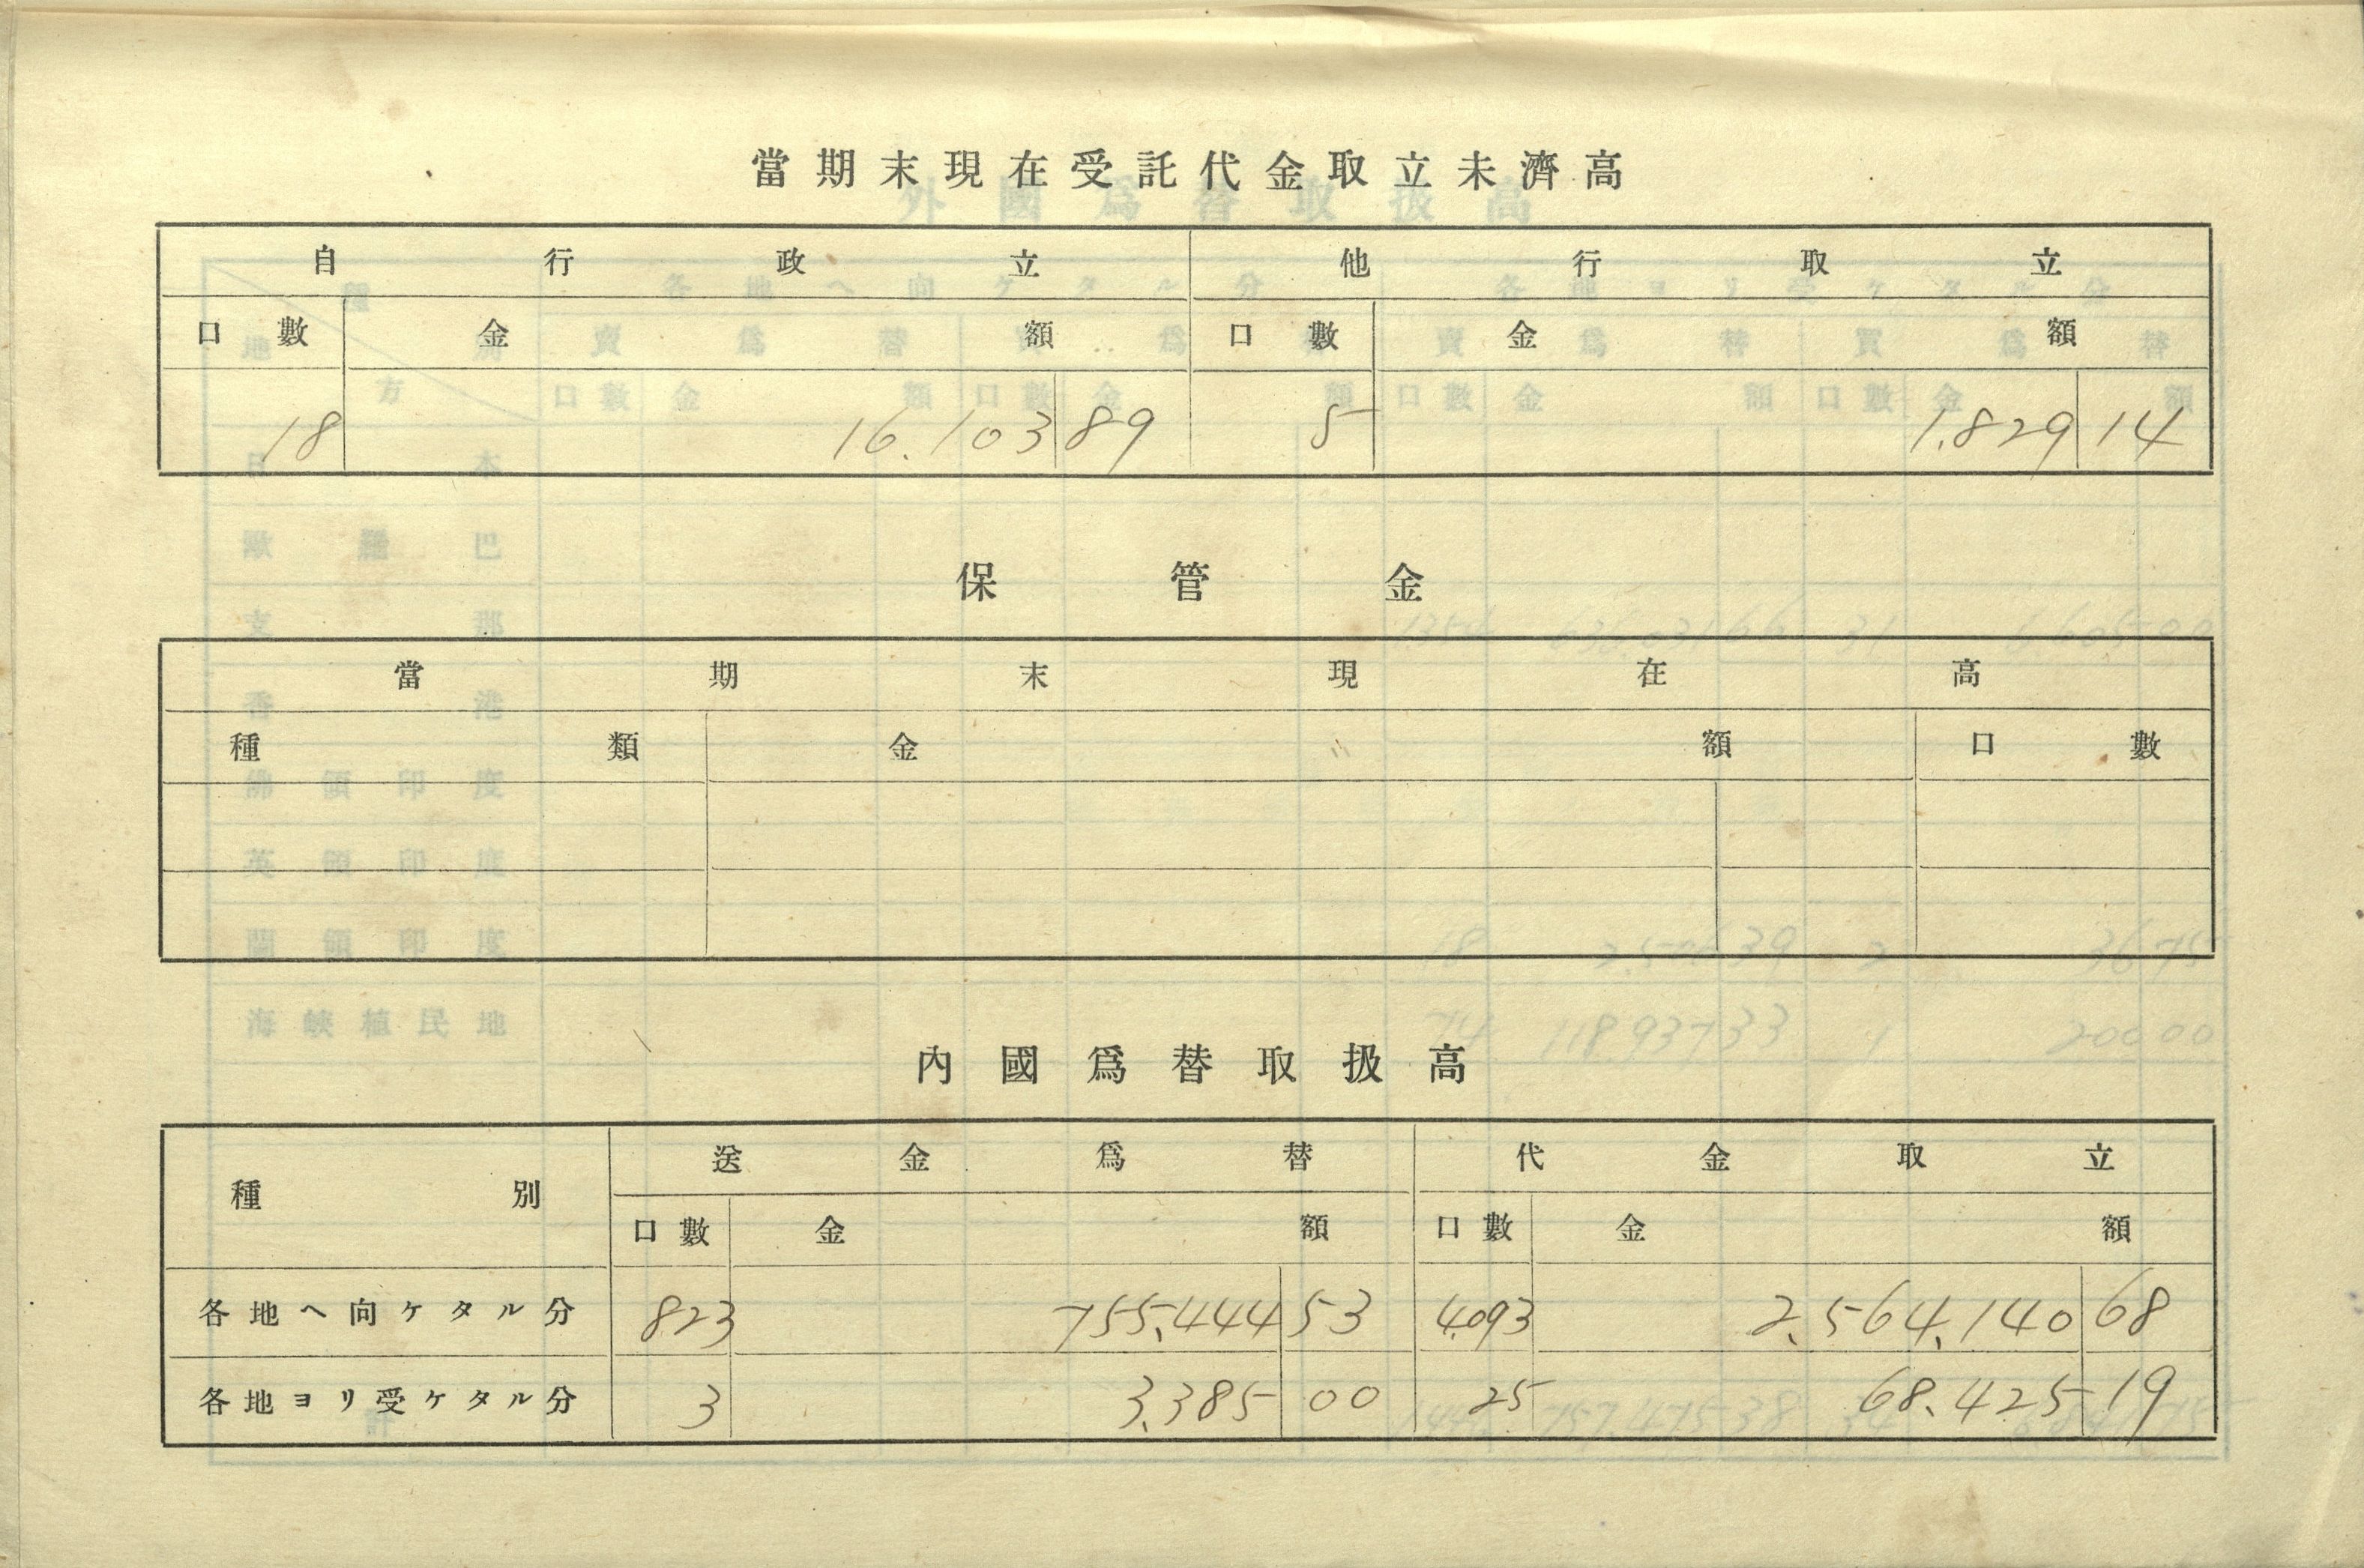 當期末現在受託代金取立未濟高
自行政立 他行取立
口數 金額 口數 金額
18 16.103 89 5 1.829 14
保管金
當期末現在高
種類 金額 口數
內國爲替取扱高
種別 送金爲替 代金取立
口數 金額 口數 金額
各地ヘ向ケタル分 823 755.444 53 4.093 2.564.140 68
各地ヨリ受ケタル分 3 3.385 00 25 68.425 19